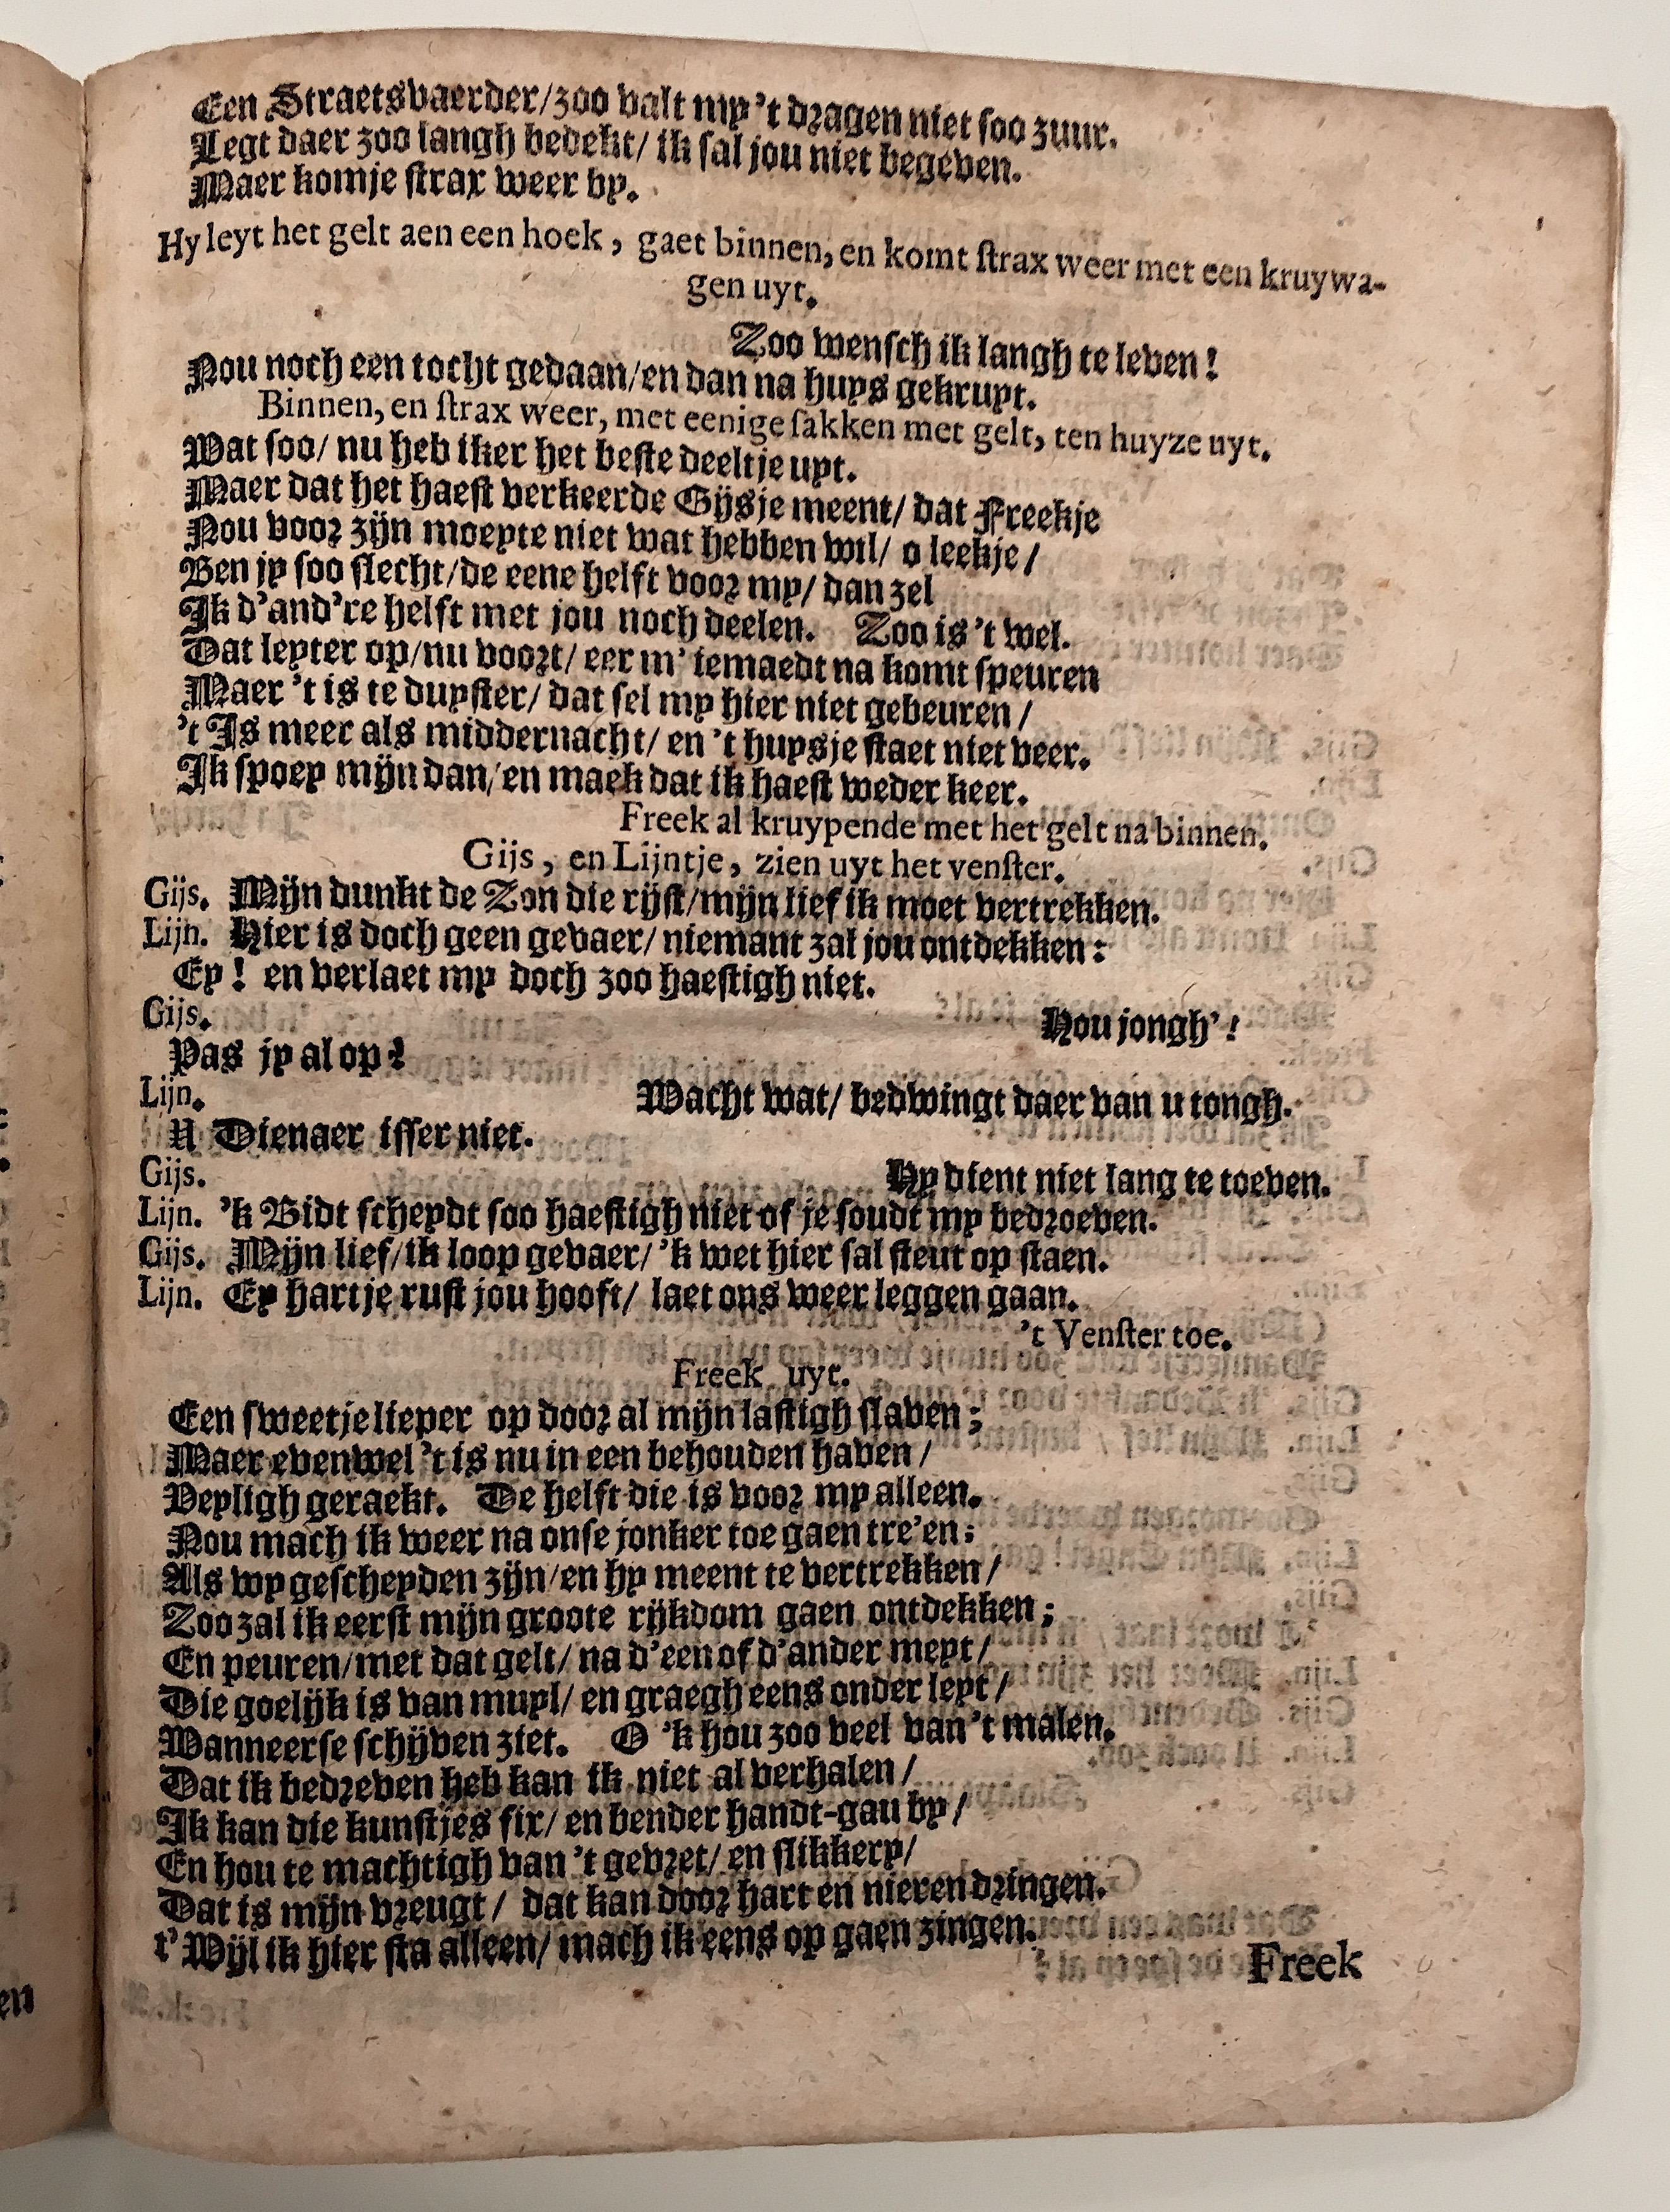 Een Straetsvaerder/zoo valt my 't dragen niet soo zuur.
Legt daer zoo langh bedekt/ ik sal jou niet begeven.
Maer komje strax weer by.
Hy leyt het gelt aen een hoek, gaet binnen, en komt strax weer met een kruywa-
gen uyt.
Zoo wensch ik langh te leven!
Nou noch een tocht gedaan/en dan na huys gekruyt.
Binnen, en strax weer, met eenige sakken met gelt, ten huyze uyt.
Wat soo/ nu heb iker het beste deeltje uyt.
Maer dat het haest verkeerde Gijsje meent/ dat Freekje
Nou voor zijn moeyte niet wat hebben wil/ o leekje/
Ben jy soo slecht/de eene helft voor my/ dan zel
Ik d'and're helft met jou noch deelen. Zoo is 't wel.
Dat leyter op/nu voort/ eer m' iemaedt na komt speuren
Maer 't is te duyster/ dat sel my hier niet gebeuren/
't Is meer als middernacht/ en 't huysje staet niet veer.
Ik spoey mijn dan/en maek dat ik haest weder keer.
Freek al kruypende met het gelt na binnen.
Gijs, en Lijntje, zien uyt het venster.
Gijs. Mijn dunkt de Zon die rijst/mijn lief ik moet vertrekken.
Lijn. Hier is doch geen gevaer/ niemant zal jou ontdekken:
Ey! en verlaet my doch zoo haestigh niet.
Gijs. Hou jongh'!
Pas jy al op?
Lijn. Wacht wat/ bedwingt daer van u tongh.
U Dienaer isser niet.
Gijs. Hy dient niet lang te toeven.
Lijn. 'k Bidt scheydt soo haestigh niet of je soudt my bedroeven.
Gijs. Mijn lief/ik loop gevaer/ 'k wet hier sal steur op staen.
Lijn. Ey hartje rust jou hooft/ laet ons weer leggen gaan.
't Venster toe.
Freek uyt.
Een sweetje lieper op door al mijn lastigh slaven;
Maer evenwel 't is nu in een behouden haven/
Veyligh geraekt. De helft die is voor my alleen.
Nou mach ik weer na onse jonker toe gaen tre'en;
Als wy gescheyden zijn/en hy meent te vertrekken/
Zoo zal ik eerst mijn groote rijkdom gaen ontdekken;
En peuren/met dat gelt/ na d'een of d'ander meyt/
Die goelijk is van muyl/ en graegh eens onder leyt/
Wanneerse schijven ziet. O 'k hou zoo veel van 't malen.
Dat ik bedreven heb kan ik niet al verhalen/
Ik kan die kunstjes fix/ en bender handt-gau by/
En hou te machtigh van 't gevret/ en slikkery/
Dat is mijn vreugt/ dat kan door hart en nieren dringen.
t' Wijl ik hier sta alleen/ mach ik eens op gaen zingen.
Freek